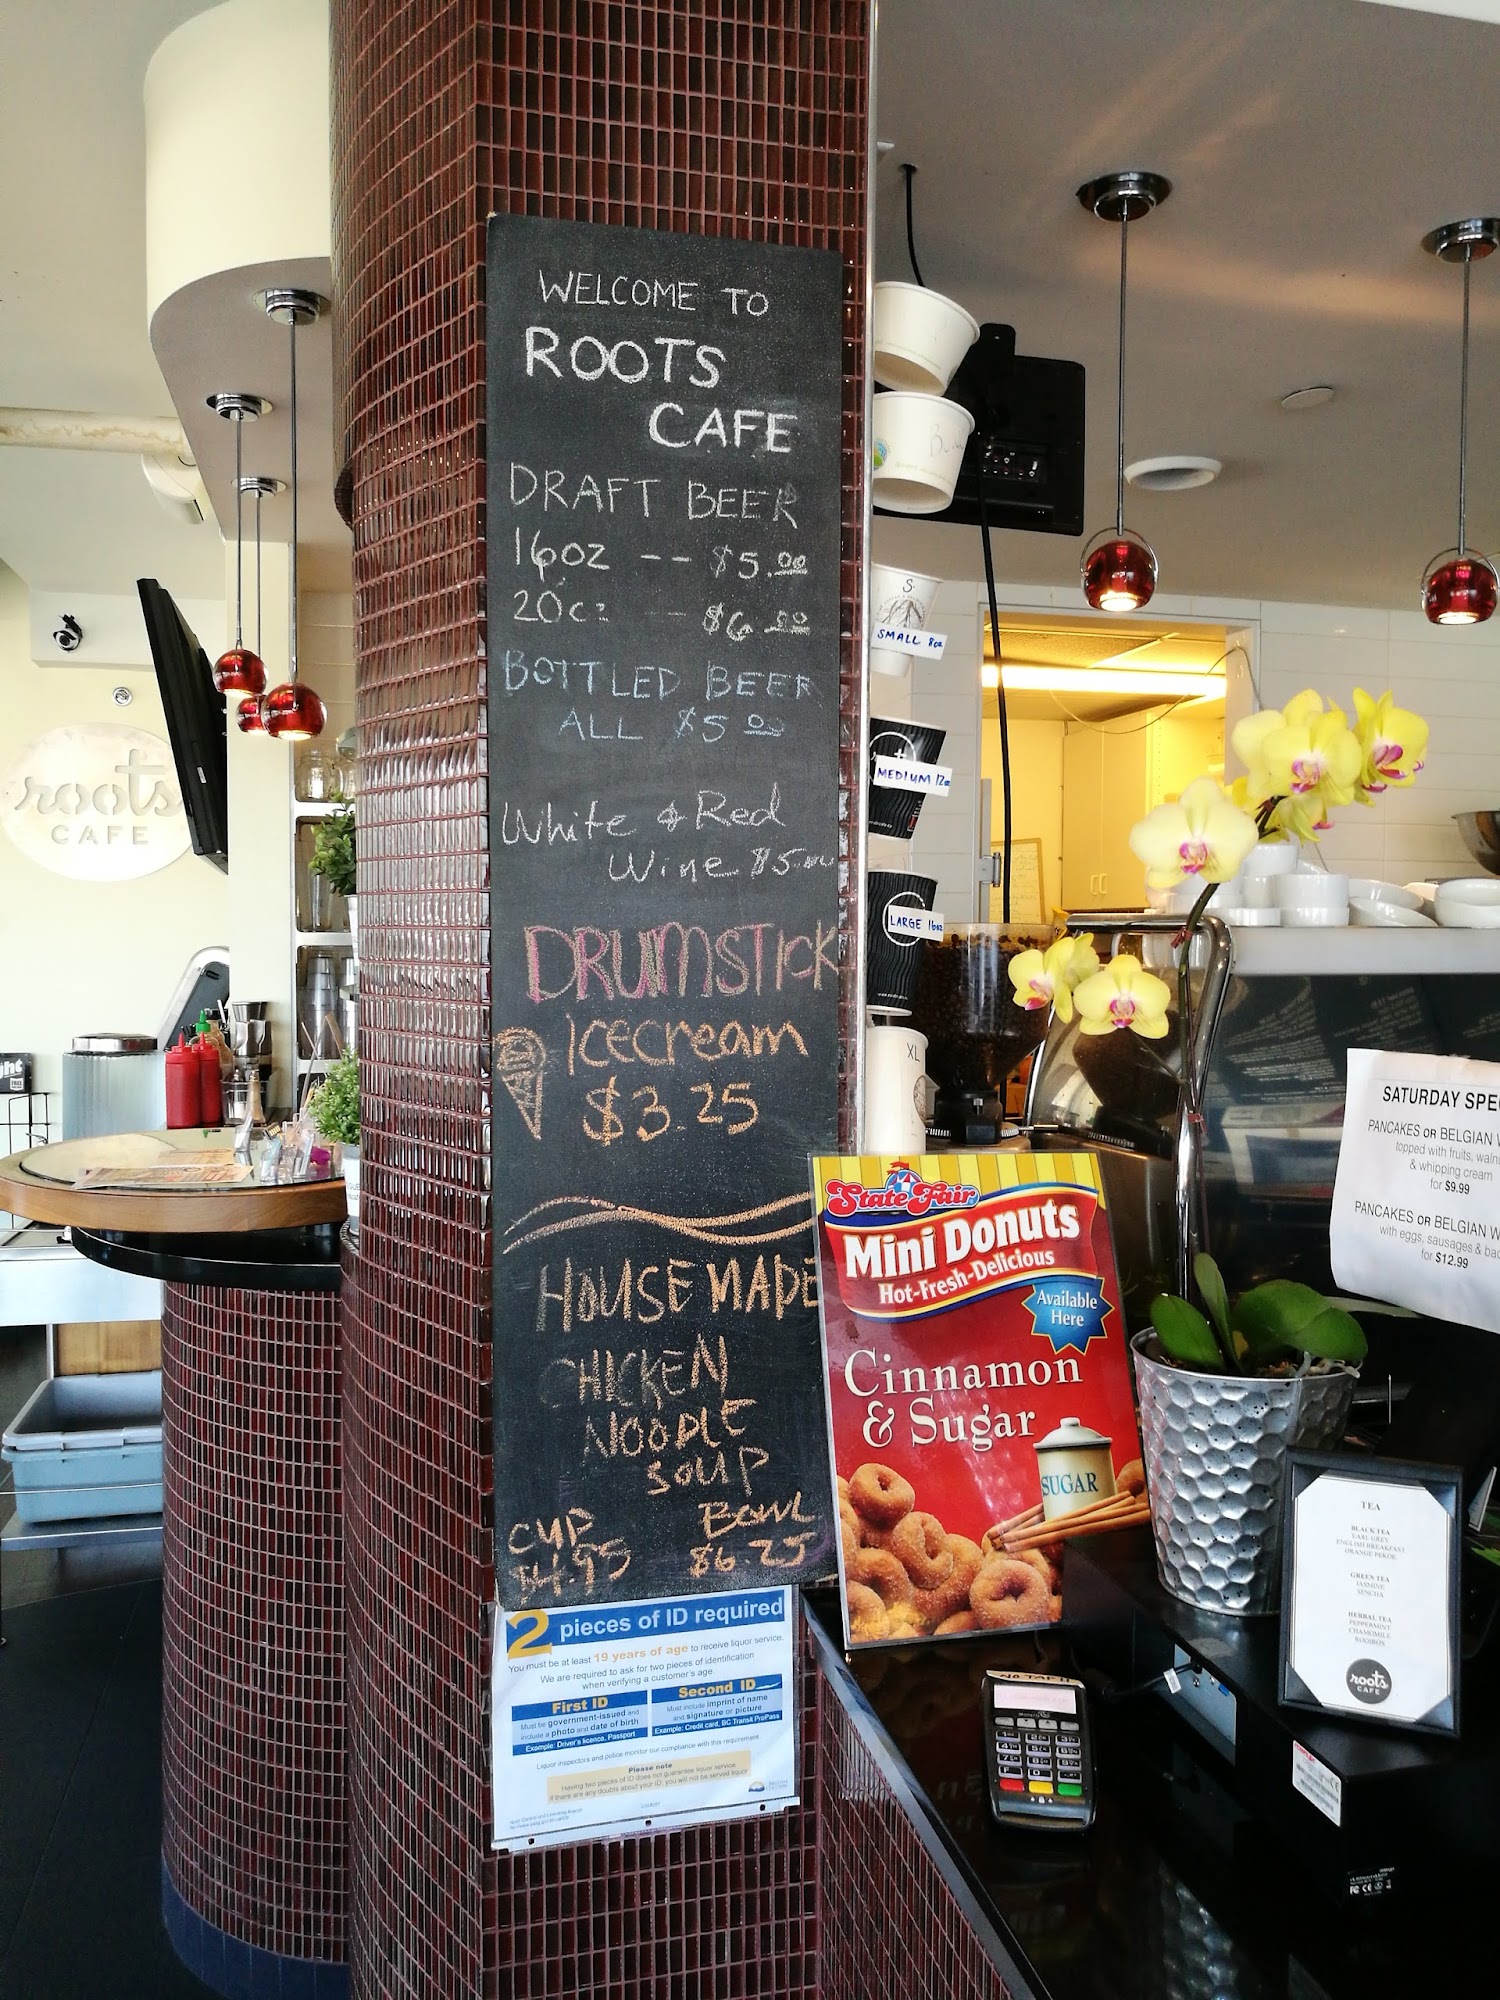 WELCOME TO
ROOTS
CAFE
DRAFT BEER
16oz -- $5.00
20oz -- $6.00
BOTTLED BEER
ALL $5.00
White & Red
Wine $5.00
DRUMSTICK
Icecream
$3.25
HOUSEMADE
CHICKEN
NOODLE
SOUP
CUP BOWL
$4.95 $6.25
2 pieces of ID required
You must be at least 19 years of age to receive liquor service.
We are required to ask for two pieces of identification
when verifying a customer's age.
First ID
Must be government-issued and
include a photo and date of birth
Example: Driver's licence, Passport
Second ID
Must include imprint of name
and signature or picture
Example: Credit card, BC Transit ProPass
Liquor inspectors and police monitor our compliance with this requirement.
Please note
Having two pieces of ID does not guarantee liquor service
If there are any doubts about your ID, you will not be served liquor
roots
CAFE
S.
SMALL 8oz
MEDIUM 12oz
LARGE 16oz
XL
State Fair
Mini Donuts
Hot-Fresh-Delicious
Available
Here
Cinnamon
& Sugar
SUGAR
SATURDAY SPE
PANCAKES OR BELGIAN W
topped with fruits, waln
& whipping cream
for $9.99
PANCAKES OR BELGIAN W
with eggs, sausages & bac
for $12.99
TEA
BLACK TEA
EARL GREY
ENGLISH BREAKFAST
ORANGE PEKOE
GREEN TEA
JASMINE
SENCHA
HERBAL TEA
PEPPERMINT
CHAMOMILE
ROOIBOS
roots
CAFE
NO TAP